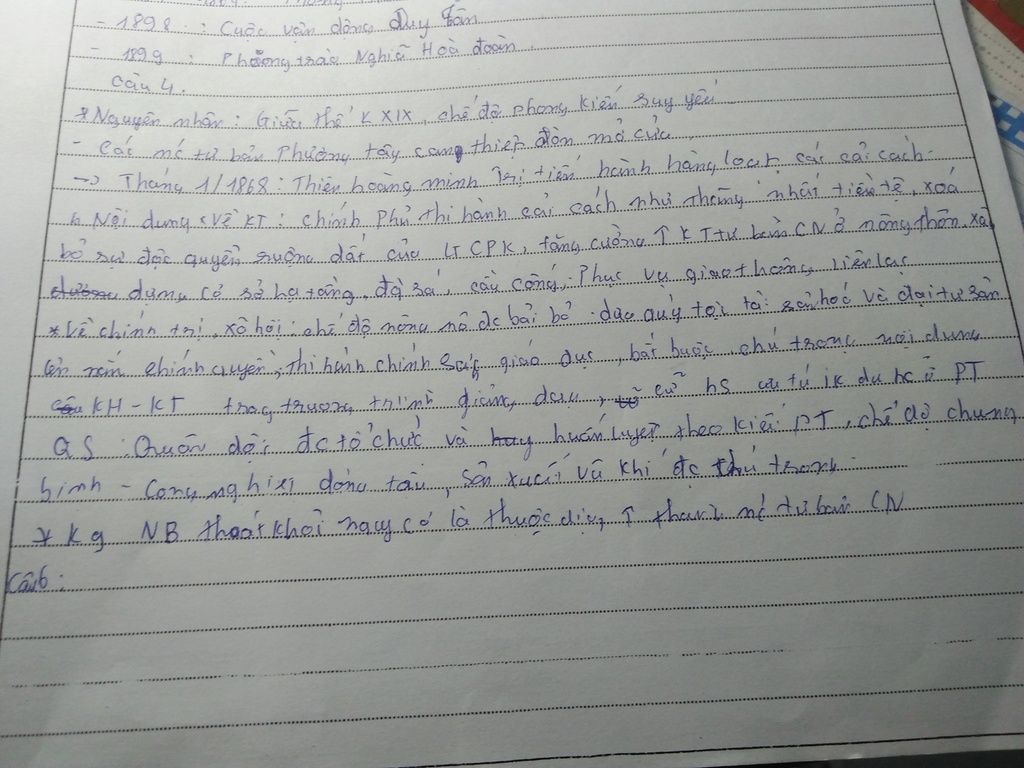 - 1898 : Cuộc vận động Duy Tân
- 1899 : Phong trào Nghiã Hoà đoàn.
Câu 4.
* Nguyên nhân : Giữa thế kỉ XIX, chế độ phong kiến suy yếu
- Các nc tư bản Phương tây can thiệp đòi mở cửa
-> Tháng 1/1868 : Thiên hoàng minh Trị tiến hành hàng loạt các cải cách.
Nội dung * Về KT : Chính Phủ thi hành cải cách như thống nhất tiền tệ, xoá
bỏ sự độc quyền ruộng đất của GCPK, tăng cường ↑ KT tư bản CN ở nông thôn, xây
dựng cơ sở hạ tầng, đg sá, cầu cống, Phục vụ giao thông liên lạc
* Về chính trị, xã hội : chế độ nông nô đc bãi bỏ đưa quý tộc tư sản hoá và đại tư sản
lên nắm chính quyền, thi hành chính sách giáo dục bắt buộc, chú trọng nội dung
KH - KT trog trương trình giảng dạy, cử hs ưu tú đi du học ở PT
QS : Quân đội đc tổ chức và huấn luyện theo kiểu PT, chế độ chưng
binh - Công nghiệp đóng tàu, sản xuất vũ khí đc chú trọng
* Kq NB thoát khỏi nguy cơ là thuộc địa, ↑ thành nc tư bản CN
Câu 6 :